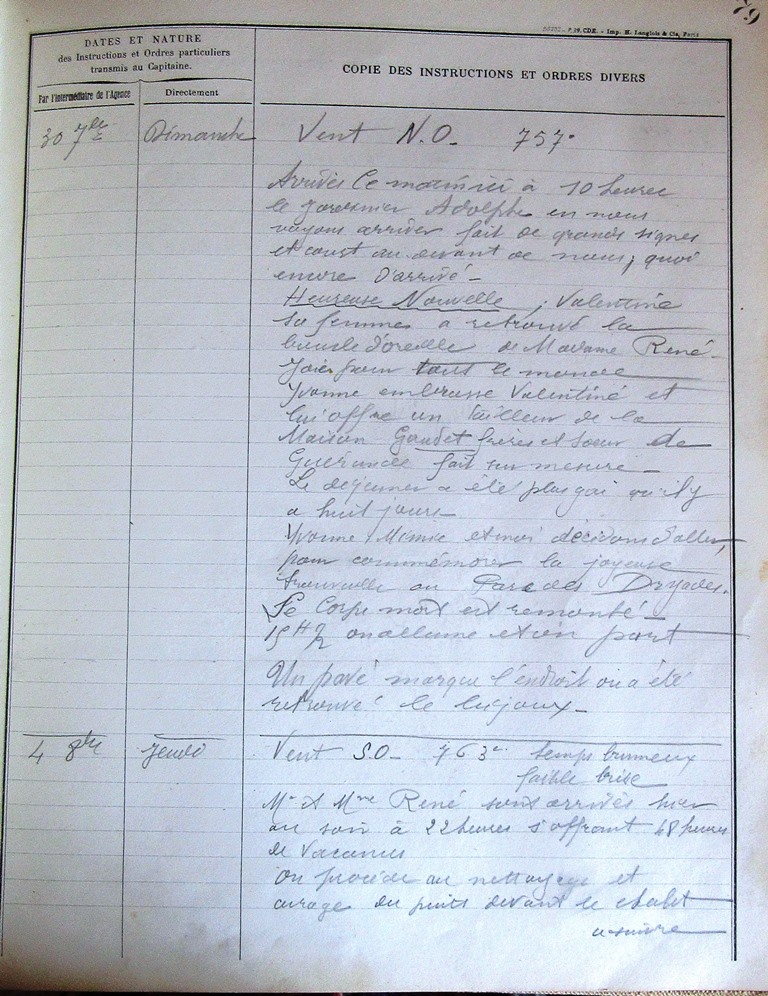 79
P. 19. CDE. - Imp. H. Langlois & Cie, Paris
DATES ET NATURE
des Instructions et Ordres particuliers
transmis au Capitaine.
COPIE DES INSTRUCTIONS ET ORDRES DIVERS
Par l'intermédiaire de l'Agence
Directement
30 7bre Dimanche Vent N.O. 757
Arrivés ce matin ici à 10 heures
le jardinier Adolphe en nous
voyant arriver fait de grands signes
et court au devant de nous, quoi
encore d'arrivé -
Heureuse Nouvelle, Valentine
sa femme a retrouvé la
boucle d'oreille de Madame René -
Joie pour tout le monde
Yvonne embrasse Valentine et
lui offre un tailleur de la
Maison Gaudet frères et soeur de
Guérande fait sur mesure -
Le déjeuner a été plus gai qu'il y
a huit jours -
Yvonne Mimie et moi décidons d'aller,
pour commémorer la joyeuse
trouvaille au Parc des Dryades.
Le Corps mort est remonté -
15H½ on allume et on part
Un pavé marque l'endroit où a été
retrouvé le bijoux -
4 8bre Jeudi Vent S.O. 763 temps brumeux
faible brise
Mr et Mme René sont arrivés hier
au soir à 22 heures s'offrant 48 heures
de Vacances
On procède au nettoyage et
curage du puits devant le chalet
à suivre